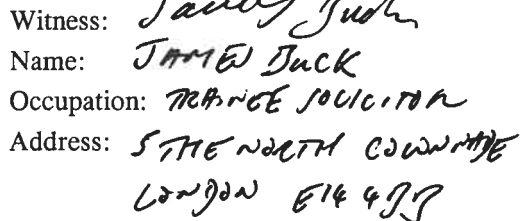 Witness: James Buck
Name: JAMES BUCK
Occupation: TRAINEE SOLICITOR
Address: 5 THE NORTH COLONNADE
LONDON E14 4BB